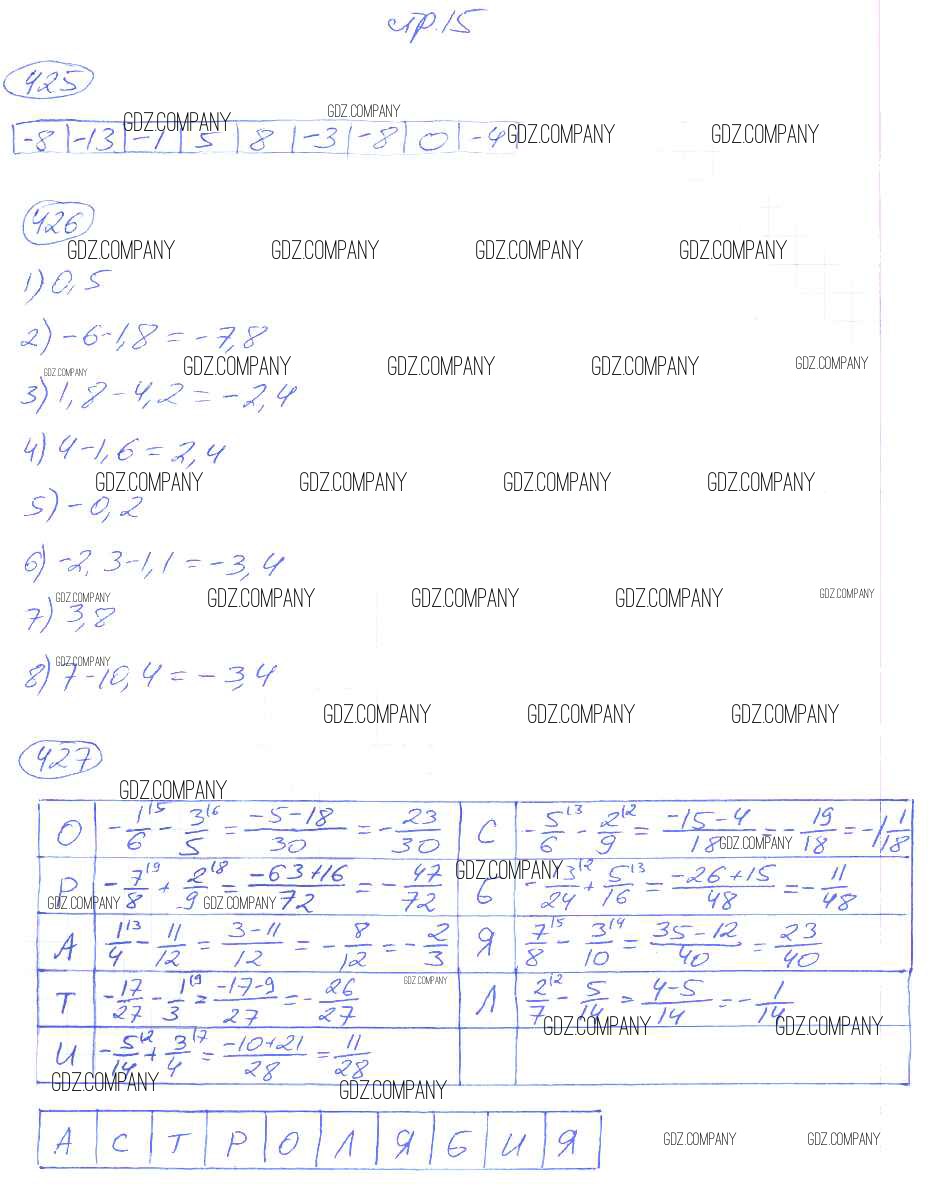 стр.15
425
GDZ.COMPANY GDZ.COMPANY GDZ.COMPANY GDZ.COMPANY
-8 -13 -1 5 8 -3 -8 0 -4
426
GDZ.COMPANY GDZ.COMPANY GDZ.COMPANY GDZ.COMPANY
1) 0,5
2) -6-1,8 = -7,8
GDZ.COMPANY GDZ.COMPANY GDZ.COMPANY GDZ.COMPANY GDZ.COMPANY
3) 1,8-4,2 = -2,4
4) 4-1,6 = 2,4
GDZ.COMPANY GDZ.COMPANY GDZ.COMPANY GDZ.COMPANY
5) -0,2
6) -2,3-1,1 = -3,4
GDZ.COMPANY GDZ.COMPANY GDZ.COMPANY GDZ.COMPANY GDZ.COMPANY
7) 3,8
GDZ.COMPANY
8) 7-10,4 = -3,4
GDZ.COMPANY GDZ.COMPANY GDZ.COMPANY
427
GDZ.COMPANY
О -1/6 |5 - 3/5 |6 = (-5-18)/30 = -23/30 С -5/6 |3 - 2/9 |2 = (-15-4)/18 = -19/18 = -1 1/18
GDZ.COMPANY GDZ.COMPANY
Р -7/8 |9 + 2/9 |8 = (-63+16)/72 = -47/72 Б -13/24 |2 + 5/16 |3 = (-26+15)/48 = -11/48
GDZ.COMPANY GDZ.COMPANY
А 1/4 |3 - 11/12 = (3-11)/12 = -8/12 = -2/3 Я 7/8 |5 - 3/10 |4 = (35-12)/40 = 23/40
GDZ.COMPANY
Т -17/27 - 1/3 |9 = (-17-9)/27 = -26/27 Л 2/7 |2 - 5/14 = (4-5)/14 = -1/14
GDZ.COMPANY GDZ.COMPANY
И -5/14 |2 + 3/4 |7 = (-10+21)/28 = 11/28
GDZ.COMPANY GDZ.COMPANY
А С Т Р О Л Я Б И Я
GDZ.COMPANY GDZ.COMPANY